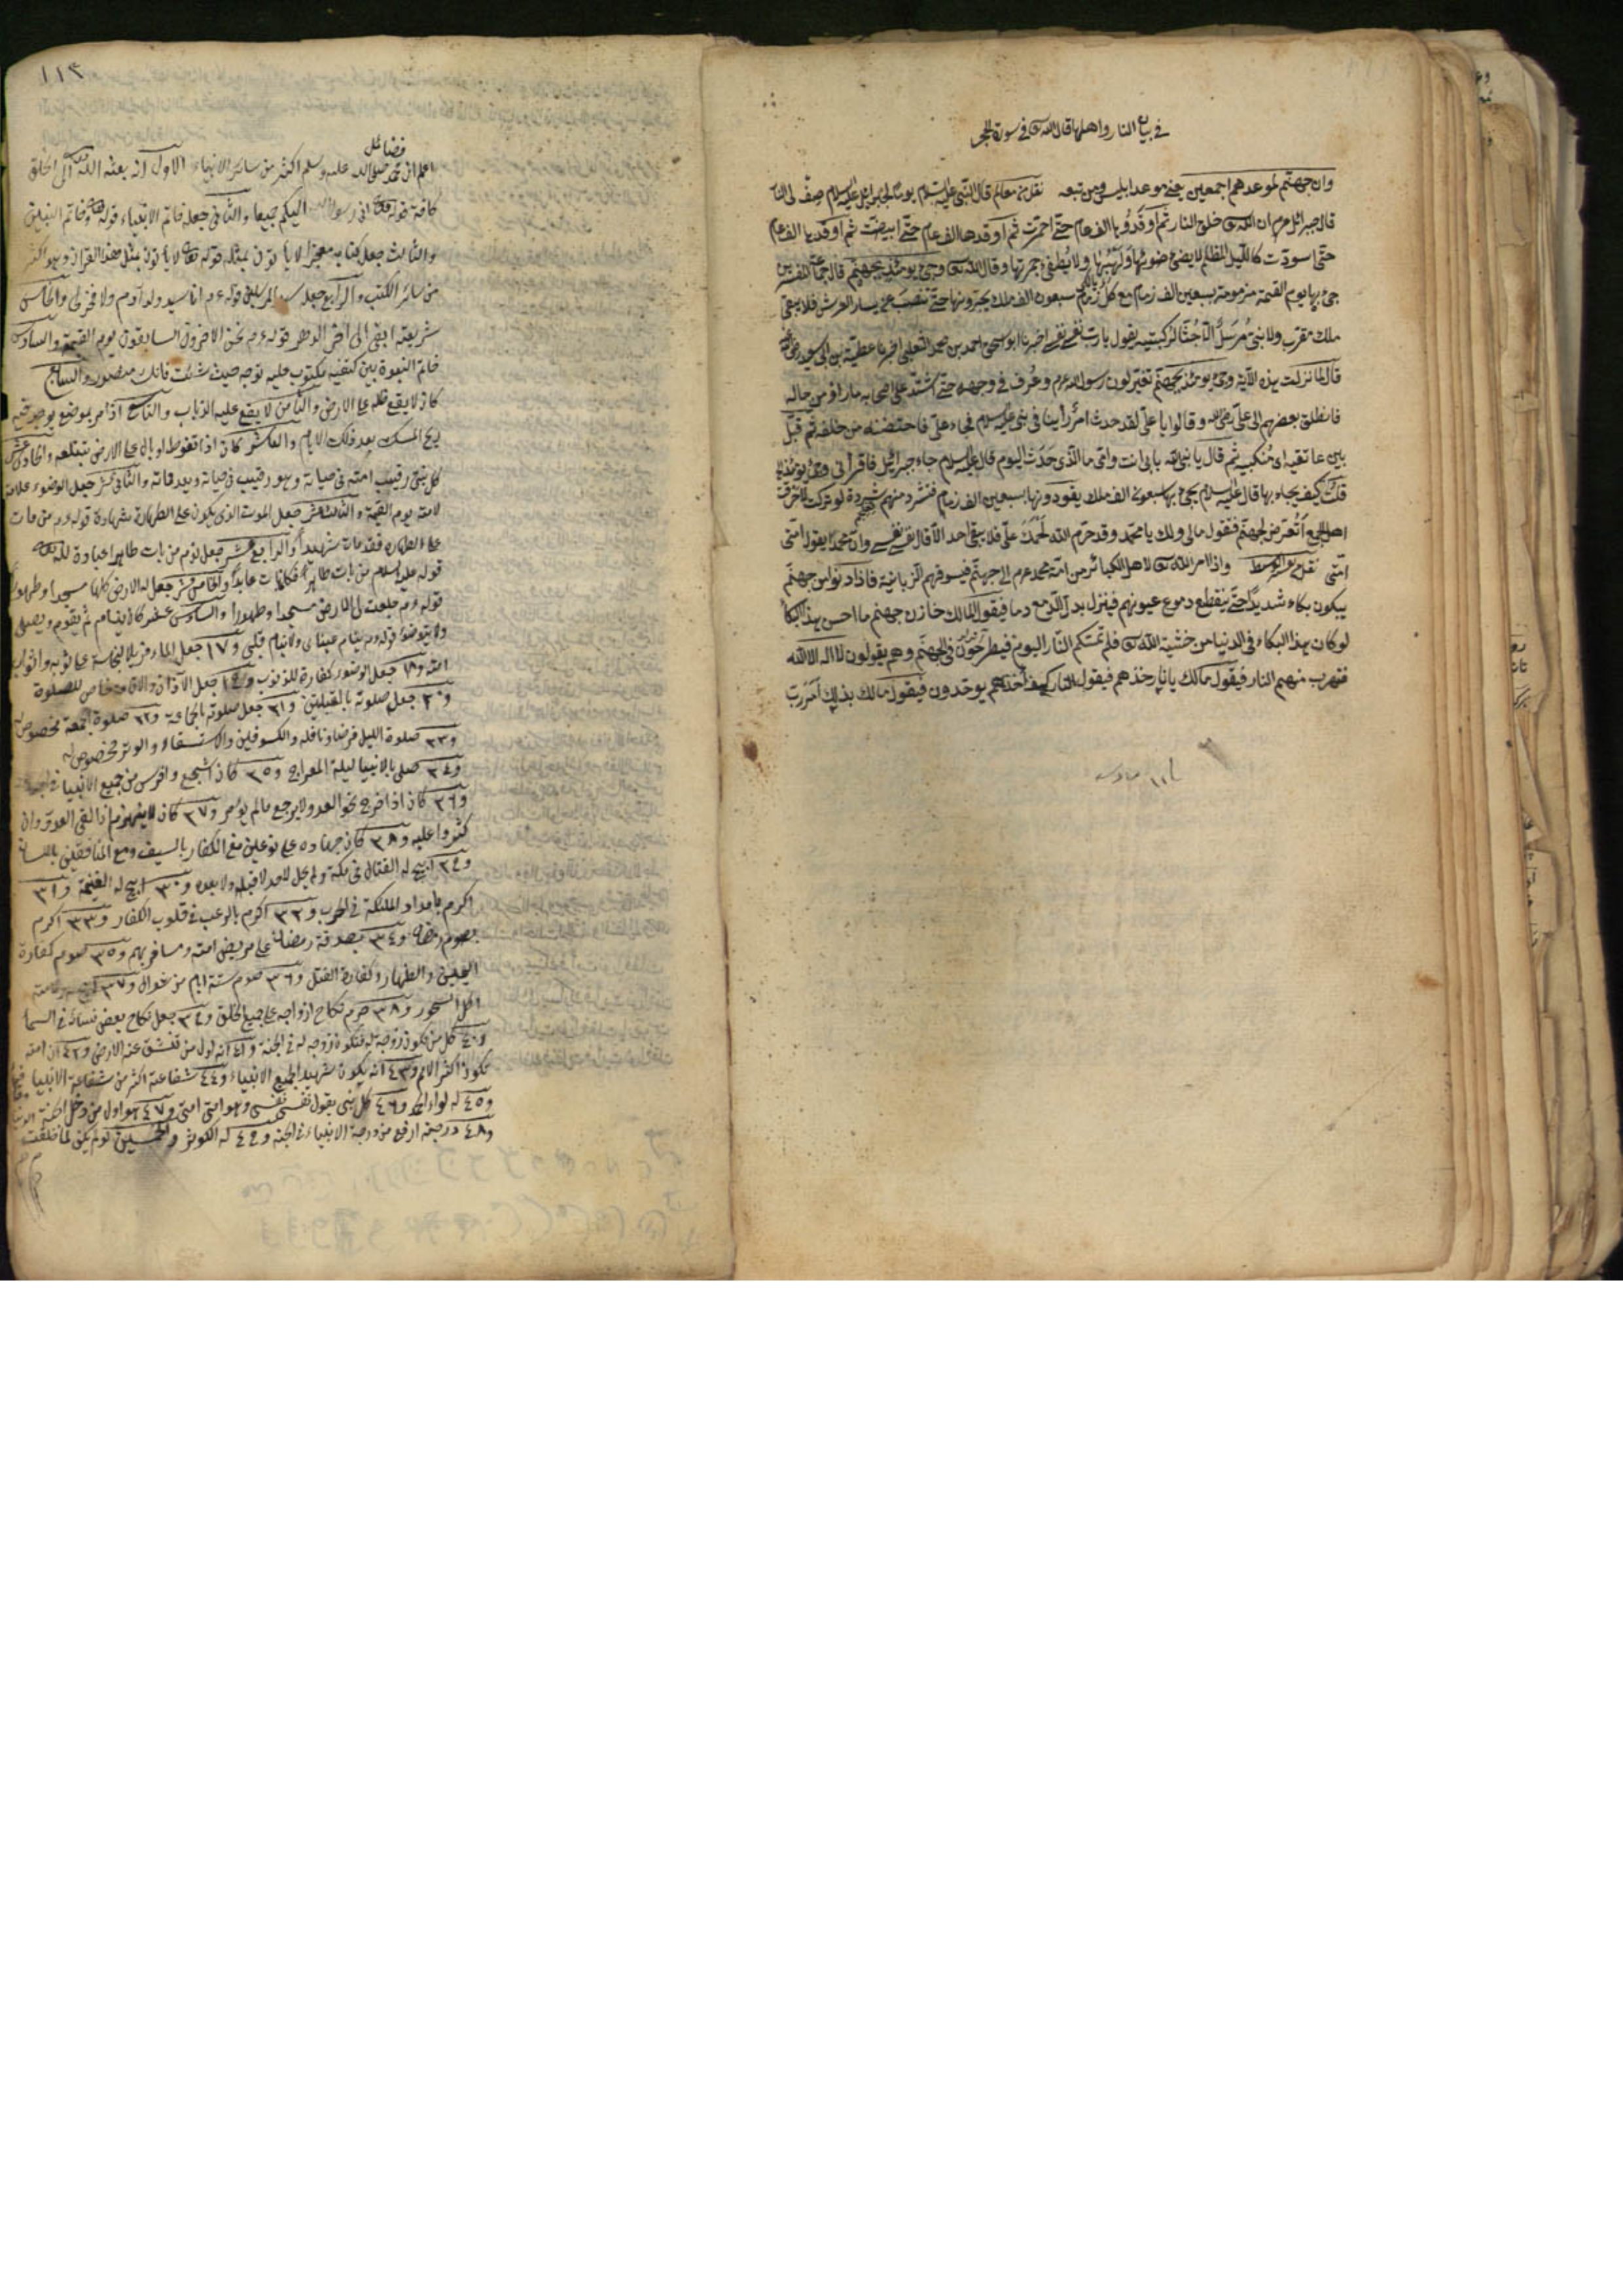 في بيان النار واهلها قال الله تع في سورة الحجر
وان جهنم لموعدهم اجمعين يعني موعد ابليس ومن تبعه نقل من معالم قال النبي عليه السلام يوما لجبرائيل عليه السلام صف لي النار
قال جبرائيل عم ان الله تع خلق النار ثم اوقدوها الف عام حتى احمرت ثم اوقدها الف عام حتى ابيضت ثم اوقدها الف عام
حتى اسودت كالليل المظلم لا يضئ ضوئها ولهبها ولا يطفئ جمرتها وقال الله تع وجئ يومئذ بجهنم قال جماعة المفسرين
جئ بها يوم القيمة مزمومة بسبعين الف زمام مع كل زمام سبعون الف ملك يجرونها حتى تنصب عن يسار العرش فلا يبقى
ملك مقرب ولا نبي مرسل الا جثا لركبتيه يقول يا رب نفسي نفسي اخبرنا ابو اسحق احمد بن محمد الثعلبي اخبرنا عطية بن ابي سعيد رضي الله عنه
قال لما نزلت هذه الآية وجئ يومئذ بجهنم تغير لون رسول الله عم وعرف في وجهه حتى اشتد على اصحابه ما راؤ من حاله
فانطلق بعضهم الى علي رضي الله وقالوا يا علي لقد حدث امر رأينا في نبي عليه السلام فجاء علي فاحتضنه من خلفه ثم قبل
بين عاتقيه اي منكبيه ثم قال يا نبي الله بابي انت وامي ما الذي حدث اليوم قال عليه السلام جاء جبرائيل فاقرأني وجئ يومئذ
قلت كيف يجاء بها قال عليه السلام يجئ بها سبعون الف ملك يقودونها بسبعين الف زمام فتشرد منهم شردة لو تركت لاحرقت
اهل الجمع اتعرض لجهنم فتقول مالي ولك يا محمد وقد حرم الله لحمك علي فلا يبقى احد الا قال نفسي نفسي وان محمدا يقول امتي
امتي واذا امر الله تع لاهل الكبائر من امة محمد عم الى جهنم فيسوقهم الزبانية فاذا دنوا من جهنم
يبكون بكاء شديدا حتى ينقطع دموع عيونهم فينزل بدل الدمع دما فيقول المالك خازن جهنم ما احسن هذا البكاء
لو كان هذا البكاء في الدنيا من خشية الله تع فلم تمسكم النار اليوم فيطرحون في الجهنم وهم يقولون لا اله الا الله
فتهرب منهم النار فيقول مالك يا نار خذهم فيقول النار كيف آخذهم يوحدون فيقول مالك بذلك امر رب
١١٣
فضائل
اعلم ان محمد صلى الله عليه وسلم اكثر من سائر الانبياء الاول انه بعثه الله تعالى الى الخلق
كافة اني رسول الله اليكم جميعا والثاني جعله خاتم الانبياء قوله تعالى وخاتم النبيين
والثالث جعل كتابه معجزا لا يأتون بمثله قوله تعالى لا يأتون بمثل هذا القرآن وهو اكثر
من سائر الكتب والرابع جعل سيد المرسلين قوله عم انا سيد ولد آدم ولا فخر لي والخامس
شريعته ابقى الى اخر الدهر قوله عم نحن الاخرون السابقون يوم القيمة والسادس
خاتم النبوة بين كتفيه مكتوب عليه توجه حيث شئت فانك منصور والسابع
كان لا يقع ظله على الارض والثامن لا يقع عليه الذباب والتاسع اذا مر بموضع يوجد فيه
ريح المسك بعد ذلك الايام والعاشر كان اذا تغوط او بال على الارض تبتلعه والحادي عشر
كل نبي رقيب امته في حياته وهو رقيب في حياته وبعد وفاته والثاني عشر جعل الوضوء علامة
لامته يوم القيمة والثالث عشر جعل الموت الذي يكون على الطهارة شهادة قوله عم من مات
على الطهارة فقد مات شهيدا والرابع عشر جعل نوم من بات طاهرا عبادة لله تعالى
قوله عليه السلام من بات طاهرا فكانما بات عابدا والخامس عشر جعل له الارض كلها مسجدا وطهورا
قوله عم جعلت لي الارض مسجدا وطهورا والسادس عشر كان ينام ثم يقوم ويصلي
ولا يتوضؤ قوله عم ينام عيناي ولا ينام قلبي و١٧ جعل الماء مزيلا لنجاسة على ثوبه واثواب
امته و١٨ جعل الوضوء كفارة للذنوب و١٩ جعل الاذان والاقامة خاص للصلوة
و٢٠ جعل صلوته بالقبلتين و٢١ جعل صلوته بالجماعة و٢٢ صلوة الجمعة مخصوص له
و٢٣ صلوة الليل فرضا ونافلة والكسوفين والاستسقاء والوتر مخصوص له
و٢٤ صلى بالانبيا ليلة المعراج و٢٥ كان اشجع وافرس من جميع الانبيا
و٢٦ كان اذا خرج نحو العدو لا يرجع مالم يؤمر و٢٧ كان لا ينهزم اذا لقي العدو وان
كثروا عليه و٢٨ كان جهاده على نوعين مع الكفار بالسيف ومع المنافقين باللسان
و٢٩ ابيح له القتال في مكة ولم يحل لاحد لا قبله ولا بعده و٣٠ ابيح له الغنيمة و٣١
اكرم بامداد الملئكة في الحرب و٣٢ اكرم بالرعب في قلوب الكفار و٣٣ اكرم
بصوم رمضان و٣٤ بصدقة رمضان على مريض امته ومسافريهم و٣٥ صوم كفارة
اليمين والظهار وكفارة القتل و٣٦ صوم ستة ايام من شوال و٣٧
اكل السحور و٣٨ حرم نكاح ازواجه على جميع الخلق و٣٩ جعل نكاح بعض نسائه في السماء
و٤٠ كل من يكون زوجة له فتكون زوجه له في الجنة و٤١ انه اول من تنشق عنه الارض و٤٢ ان امته
تكون اكثر الامم و٤٣ انه يكون شهيدا لجميع الانبياء و٤٤ شفاعته اكثر من شفاعة الانبيا
و٤٥ له لواء الحمد و٤٦ كل نبي يقول نفسي نفسي وهو امتي امتي و٤٧ هو اول من دخل الجنة
و٤٨ درجته ارفع من درجة الانبياء في الجنة و٤٩ له الكوثر والخمسين لو لم يكن لما خلقت